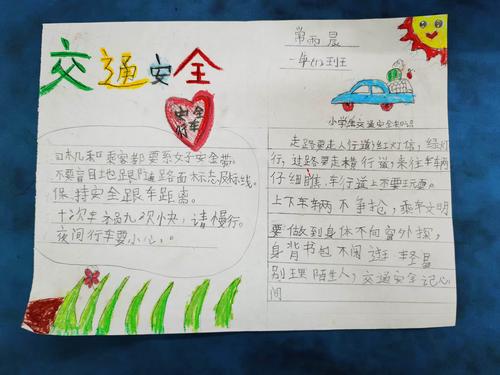 交通安全
安全
行车
司机和乘客都要系好安全带,
不要盲目地跟随道路面标志及标线。
保持安全跟车距离。
十次车祸九次快,请慢行。
夜间行车要小心。
常雨晨
一年(1)班
小学生交通安全知识
走路要走人行道;红灯停,绿灯
行,过路要走横行道;来往车辆
仔细瞧,车行道上不要玩耍。
上下车车辆不争抢,乘车文明
要做到身体不向窗外探,
身背书包不闲逛
别理陌生人,交通安全记心
间